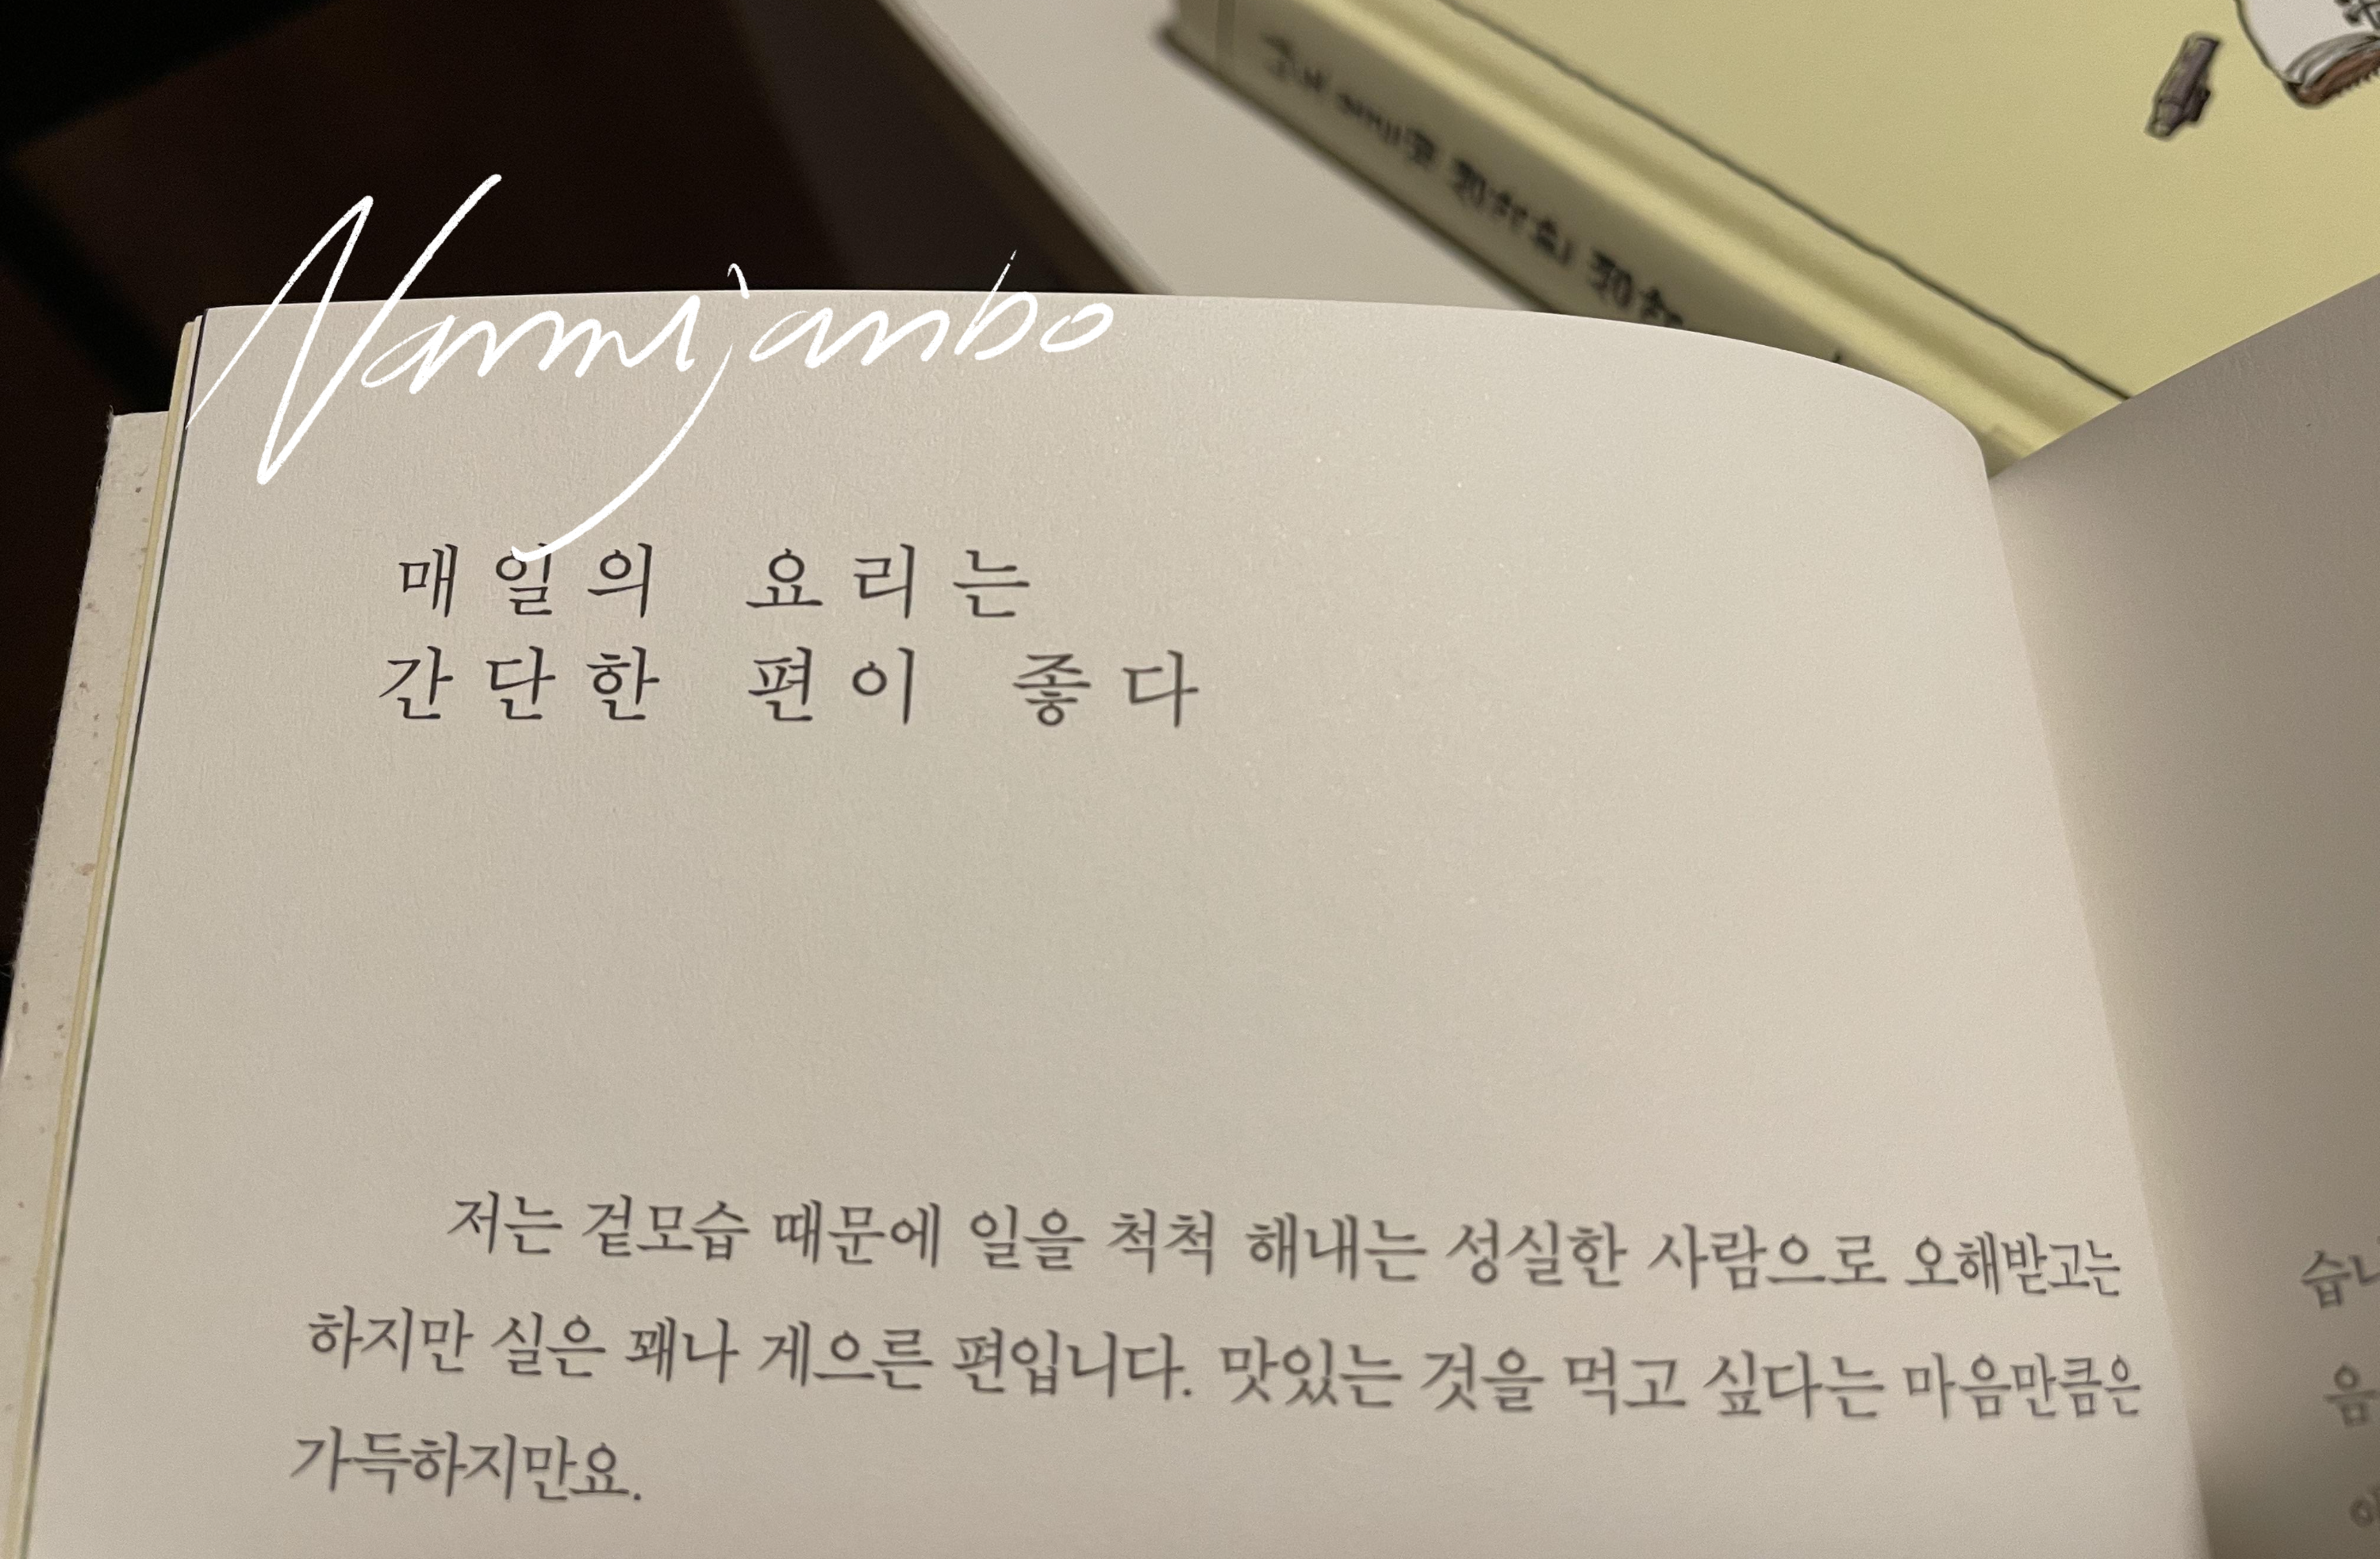 Nammijanbo
매일의 요리는
간단한 편이 좋다
저는 겉모습 때문에 일을 척척 해내는 성실한 사람으로 오해받고는
하지만 실은 꽤나 게으른 편입니다. 맛있는 것을 먹고 싶다는 마음만큼은
가득하지만요.
습니
음